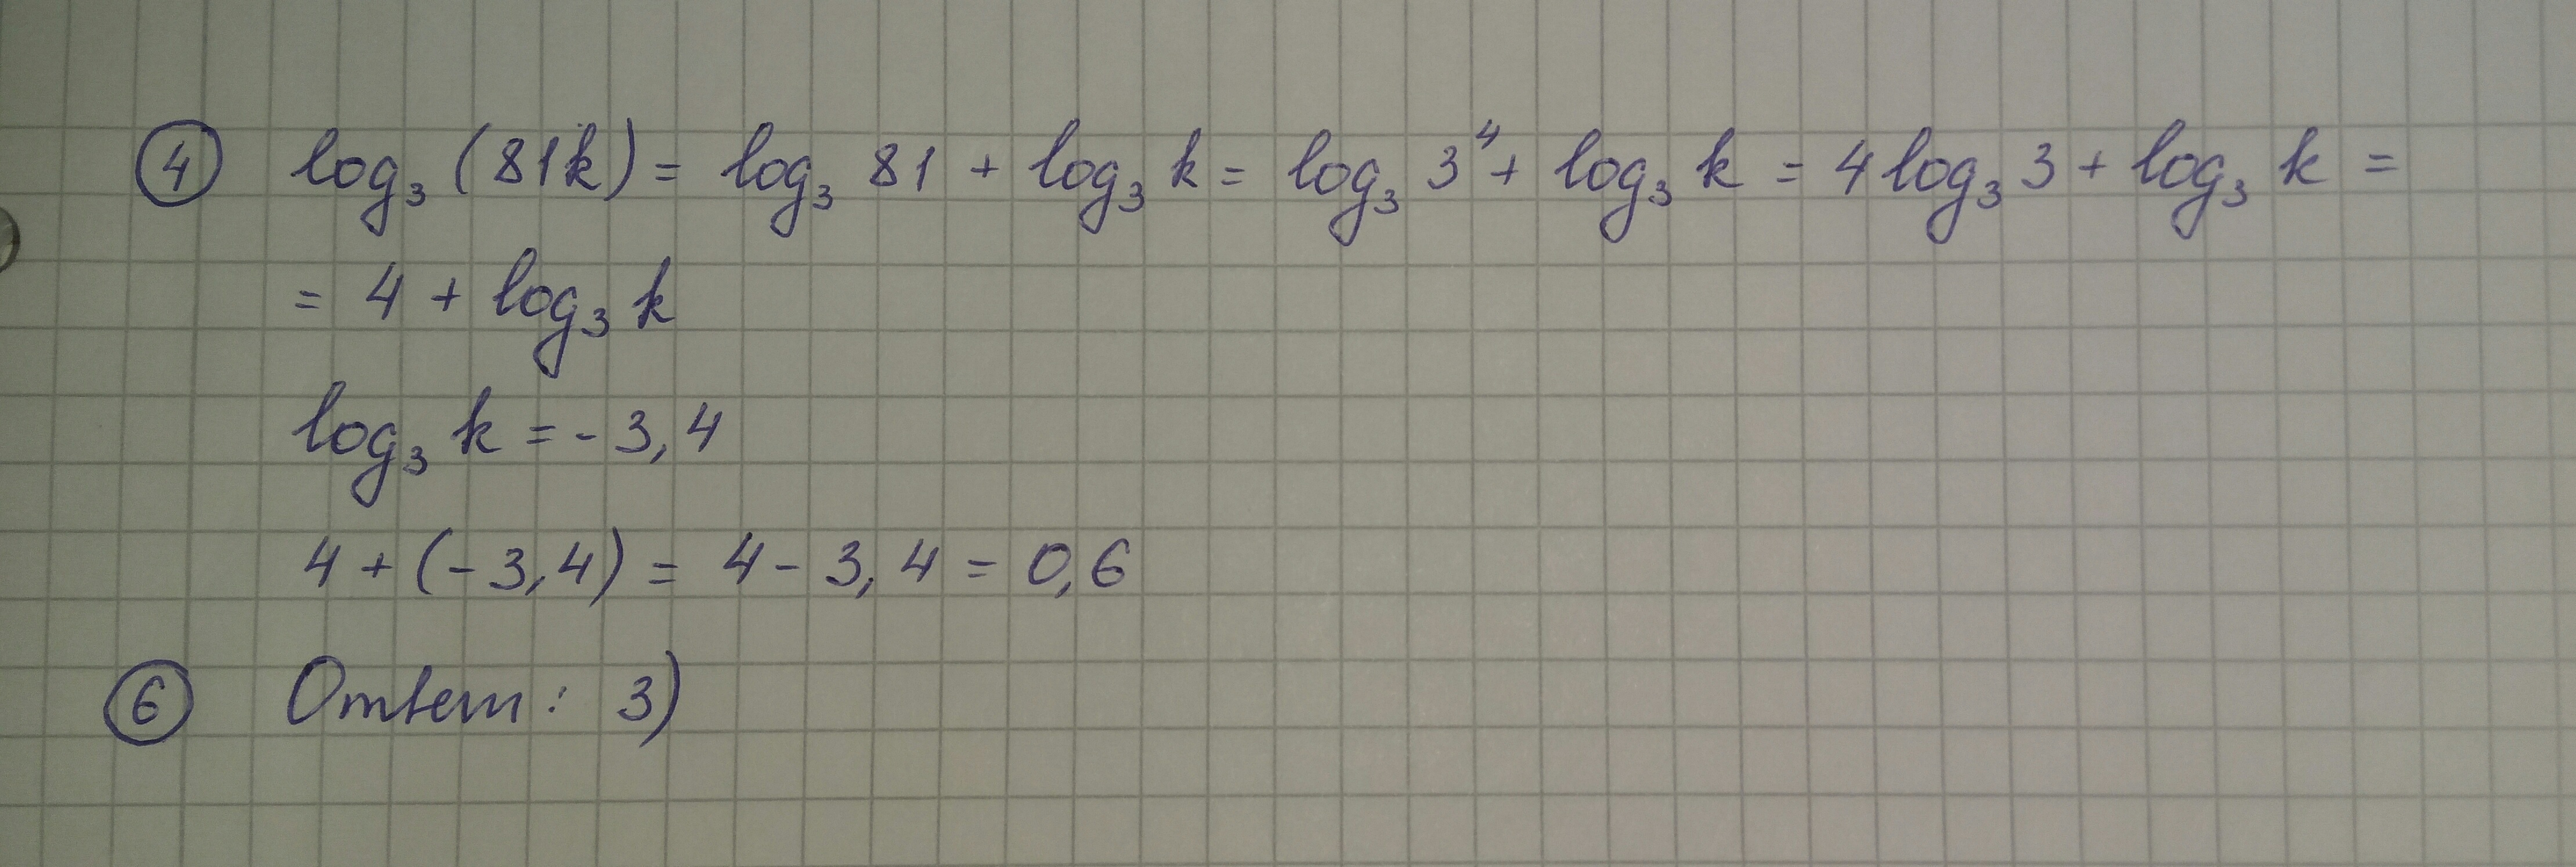 ④ log₃ (81k) = log₃ 81 + log₃ k = log₃ 3⁴ + log₃ k = 4 log₃ 3 + log₃ k =
= 4 + log₃ k
log₃ k = - 3,4
4 + (- 3,4) = 4 - 3,4 = 0,6
⑥ Ответ: 3)